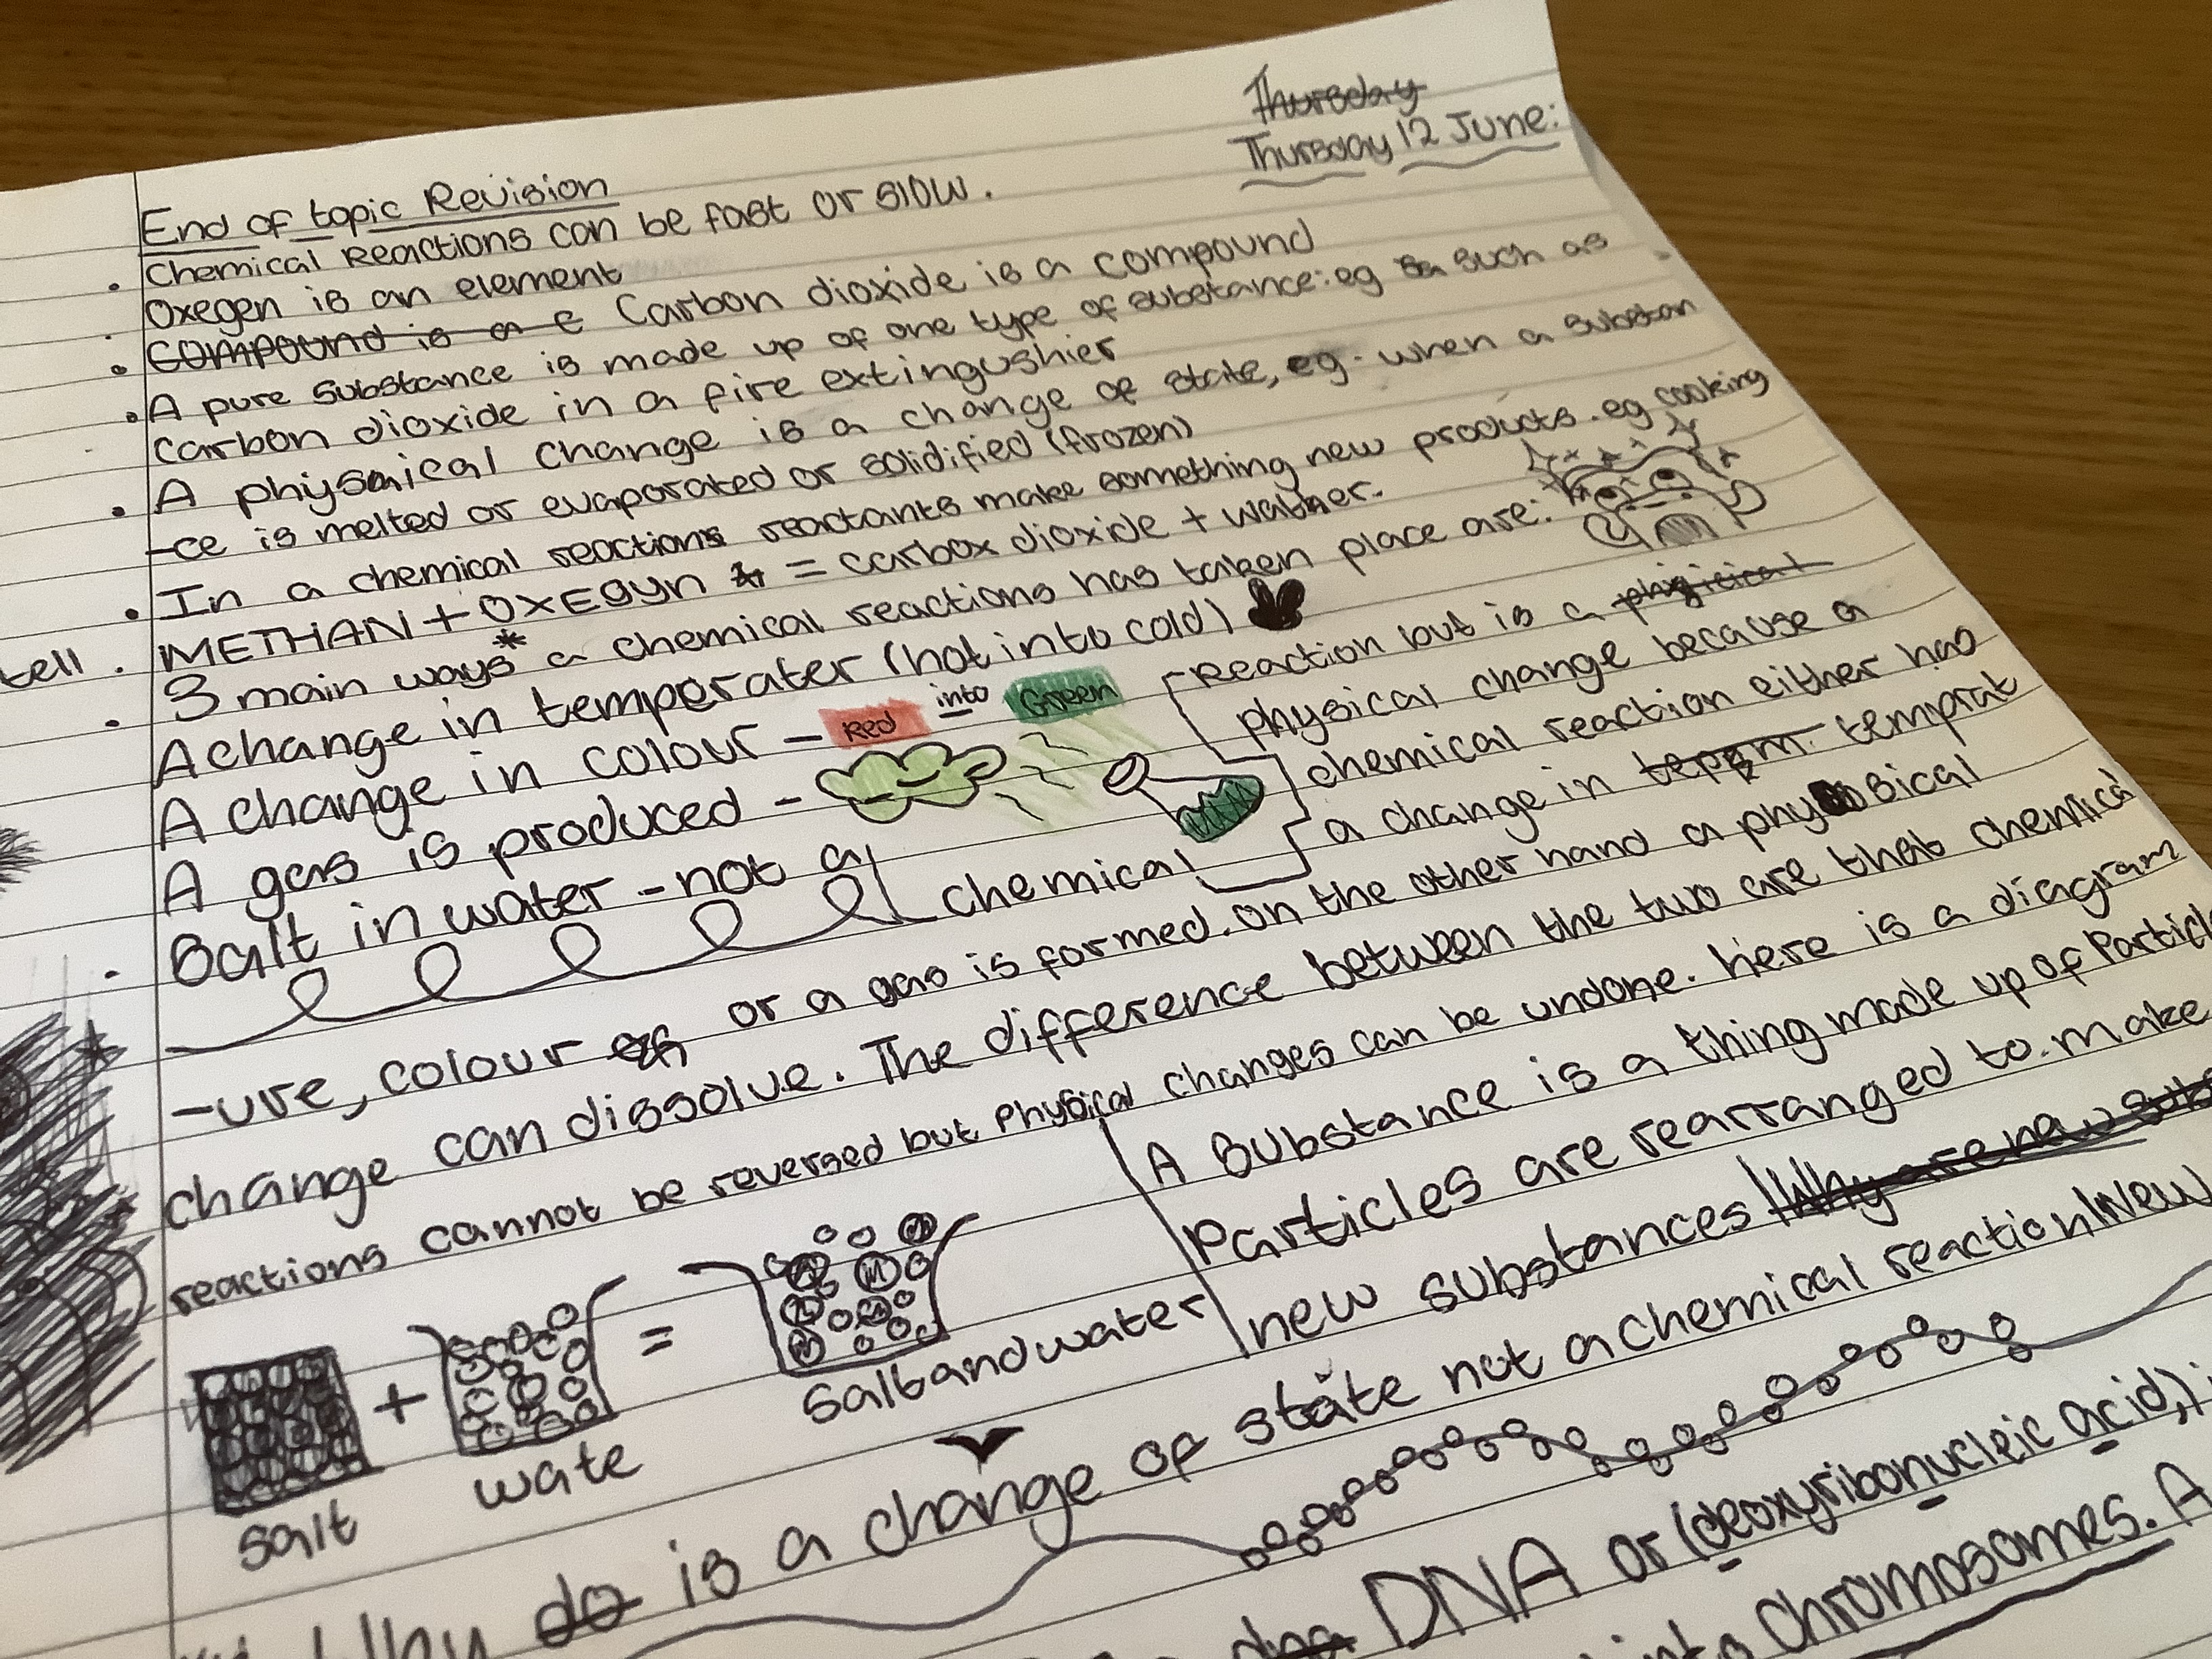 Thursday
Thursday 12 June:
End of topic Revision
Chemical Reactions can be fast or slow.
Oxegen is an element
Compound is a c Carbon dioxide is a compound
A pure substance is made up of one type of substance: eg such as
carbon dioxide in a fire extingushier
A physical change is a change of state, eg. when a substan
-ce is melted or evaporated or solidified (frozen)
In a chemical reactions reactants make something new products. eg cooking
METHAN + OXEGYN = carbox dioxide + wather.
tell. 3 main ways * a chemical reactions has taken place are:
A change in temperater (hot into cold)
A change in colour - Red into Green
A gas is produced -
Salt in water - not a chemical
reaction but is a phyicical
physical change because a
chemical reaction either has
a change in temprat
-ure, colour or a gas is formed. on the other hand a physical
change can dissolve. The difference between the two are that chemical
reactions cannot be reversed but Physical changes can be undone. here is a diagram
salt + wate = salt and water
A Substance is a thing made up of Particl
Particles are rearranged to make
new substances Why are new subs
Why do is a change of state not a chemical reaction New
dna DNA or (deoxyribonucleic acid,)
into chromosomes. A